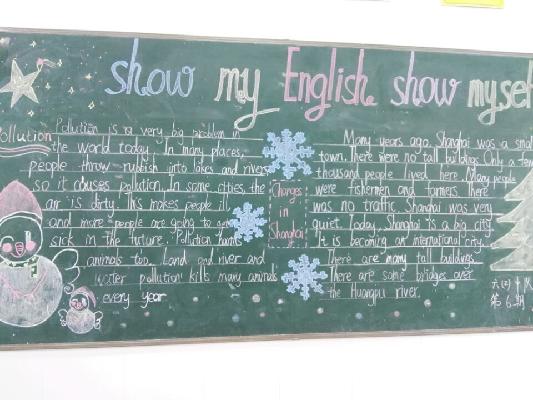 show my English show myself
Pollution
Pollution is a very big problem in
the world today. In many places,
people throw rubbish into lakes and rivers
so it causes pollution. In some cities, the
air is dirty. This makes people ill
and more people are going to get
sick in the future. Pollution harms
animals too. Land and river and
water pollution kills many animals
every year
Changes
in
Shanghai
Many years ago. Shanghai was a small
town. There were no tall buildings. Only a few
thousand people lived here. Many people
were fishermen and farmers. There
was no traffic. Shanghai was very
quiet. Today, Shanghai is a big city.
It is becoming an international city.
There are many tall buildings.
There are some bridges over
the Huangpu river.
六(2)中队
第6期